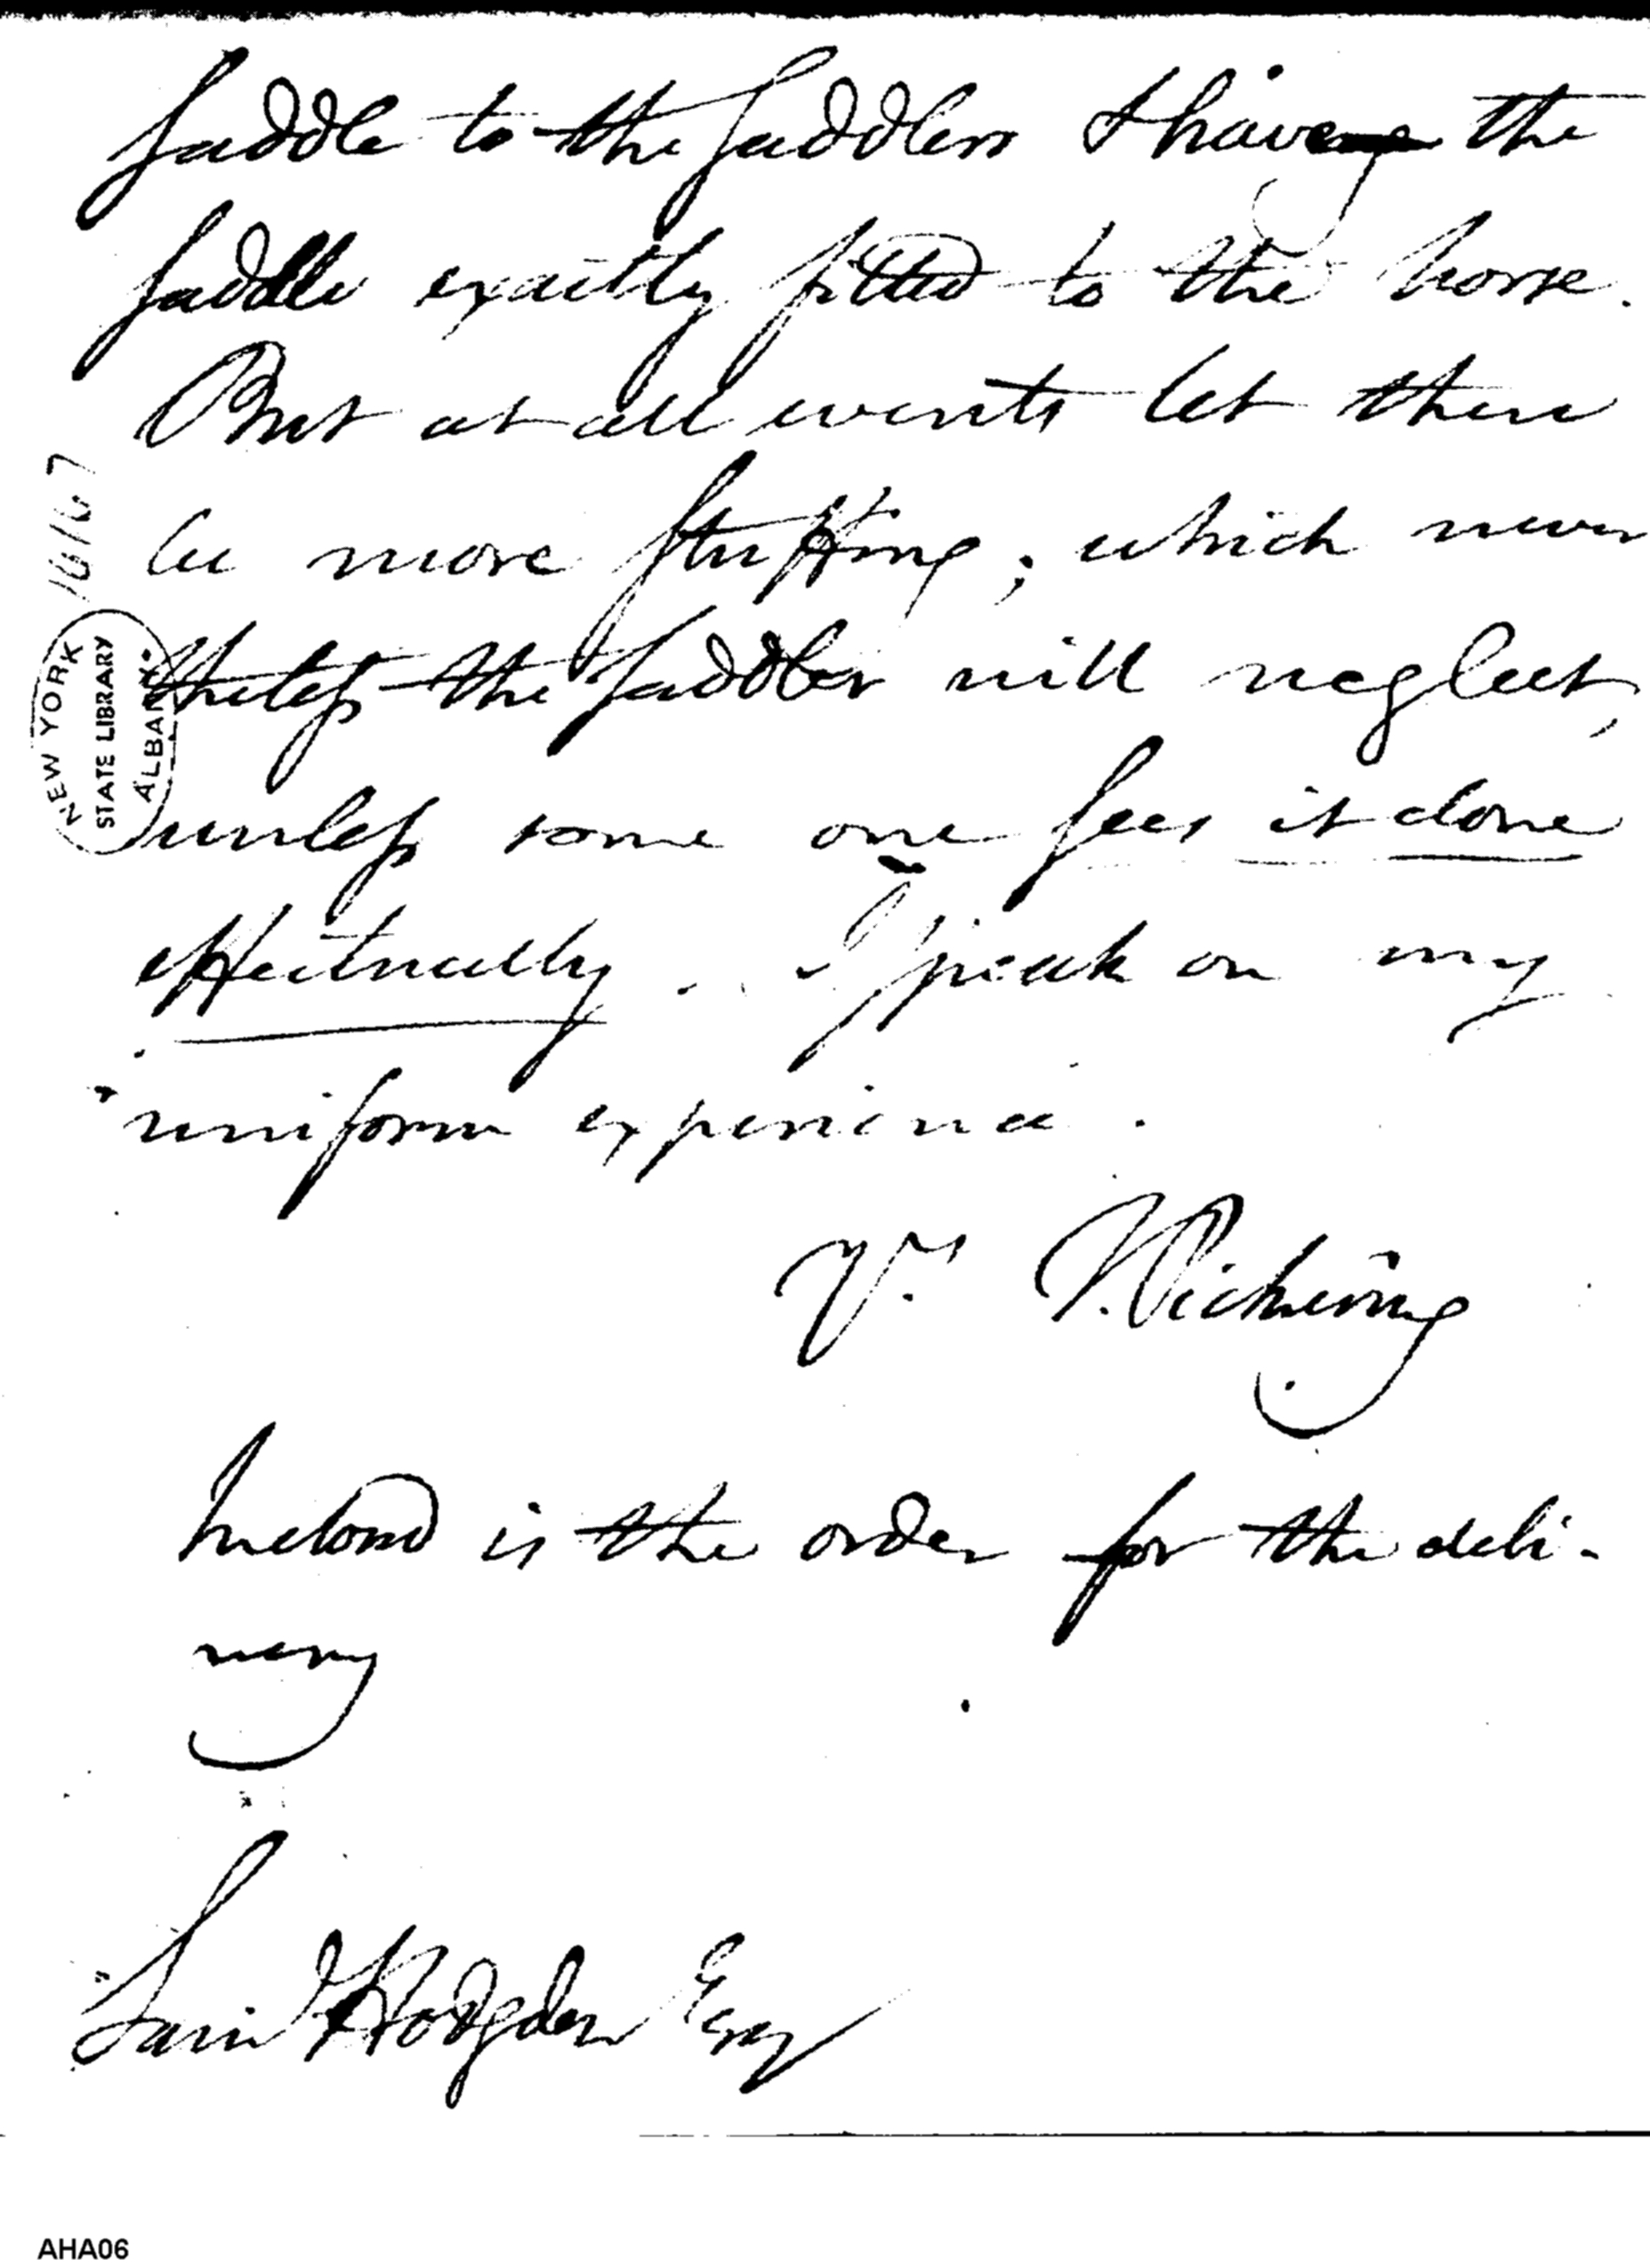 saddle to the saddlers & have the
saddle exactly fitted to the horse.
But at all events let there
be more stuffing; which never
theless the saddler will neglect,
unless some one sees it done
effectually. I speak on my
uniform experience.
Yrs. T. Pickering
Inclosed is the order for the deli-
very
Saml Hodgdon Esq
16167
NEW YORK
STATE LIBRARY
ALBANY
AHA06